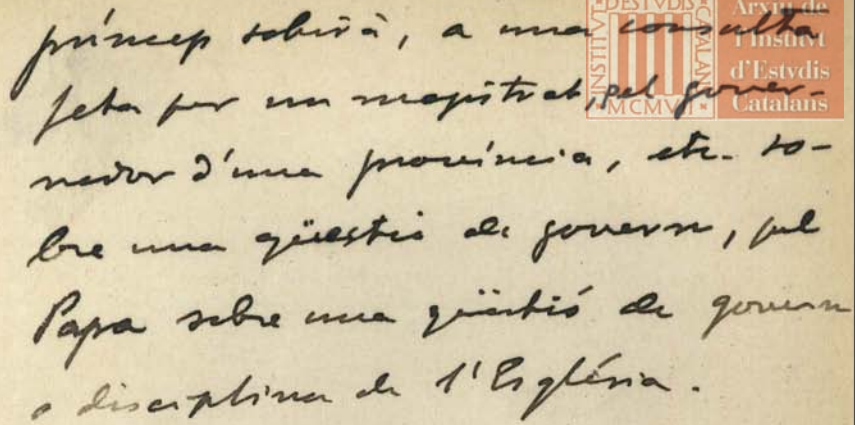 príncep sobirà, a una consulta
feta per un magistrat, pel gover-
nador d'una província, etc. so-
bre una qüestió de govern, pel
Papa sobre una qüestió de govern
o disciplina de l'Església.
INSTITVT D'ESTVDIS CATALANS
MCMVII
Arxiu de
l'Institvt
d'Estvdis
Catalans